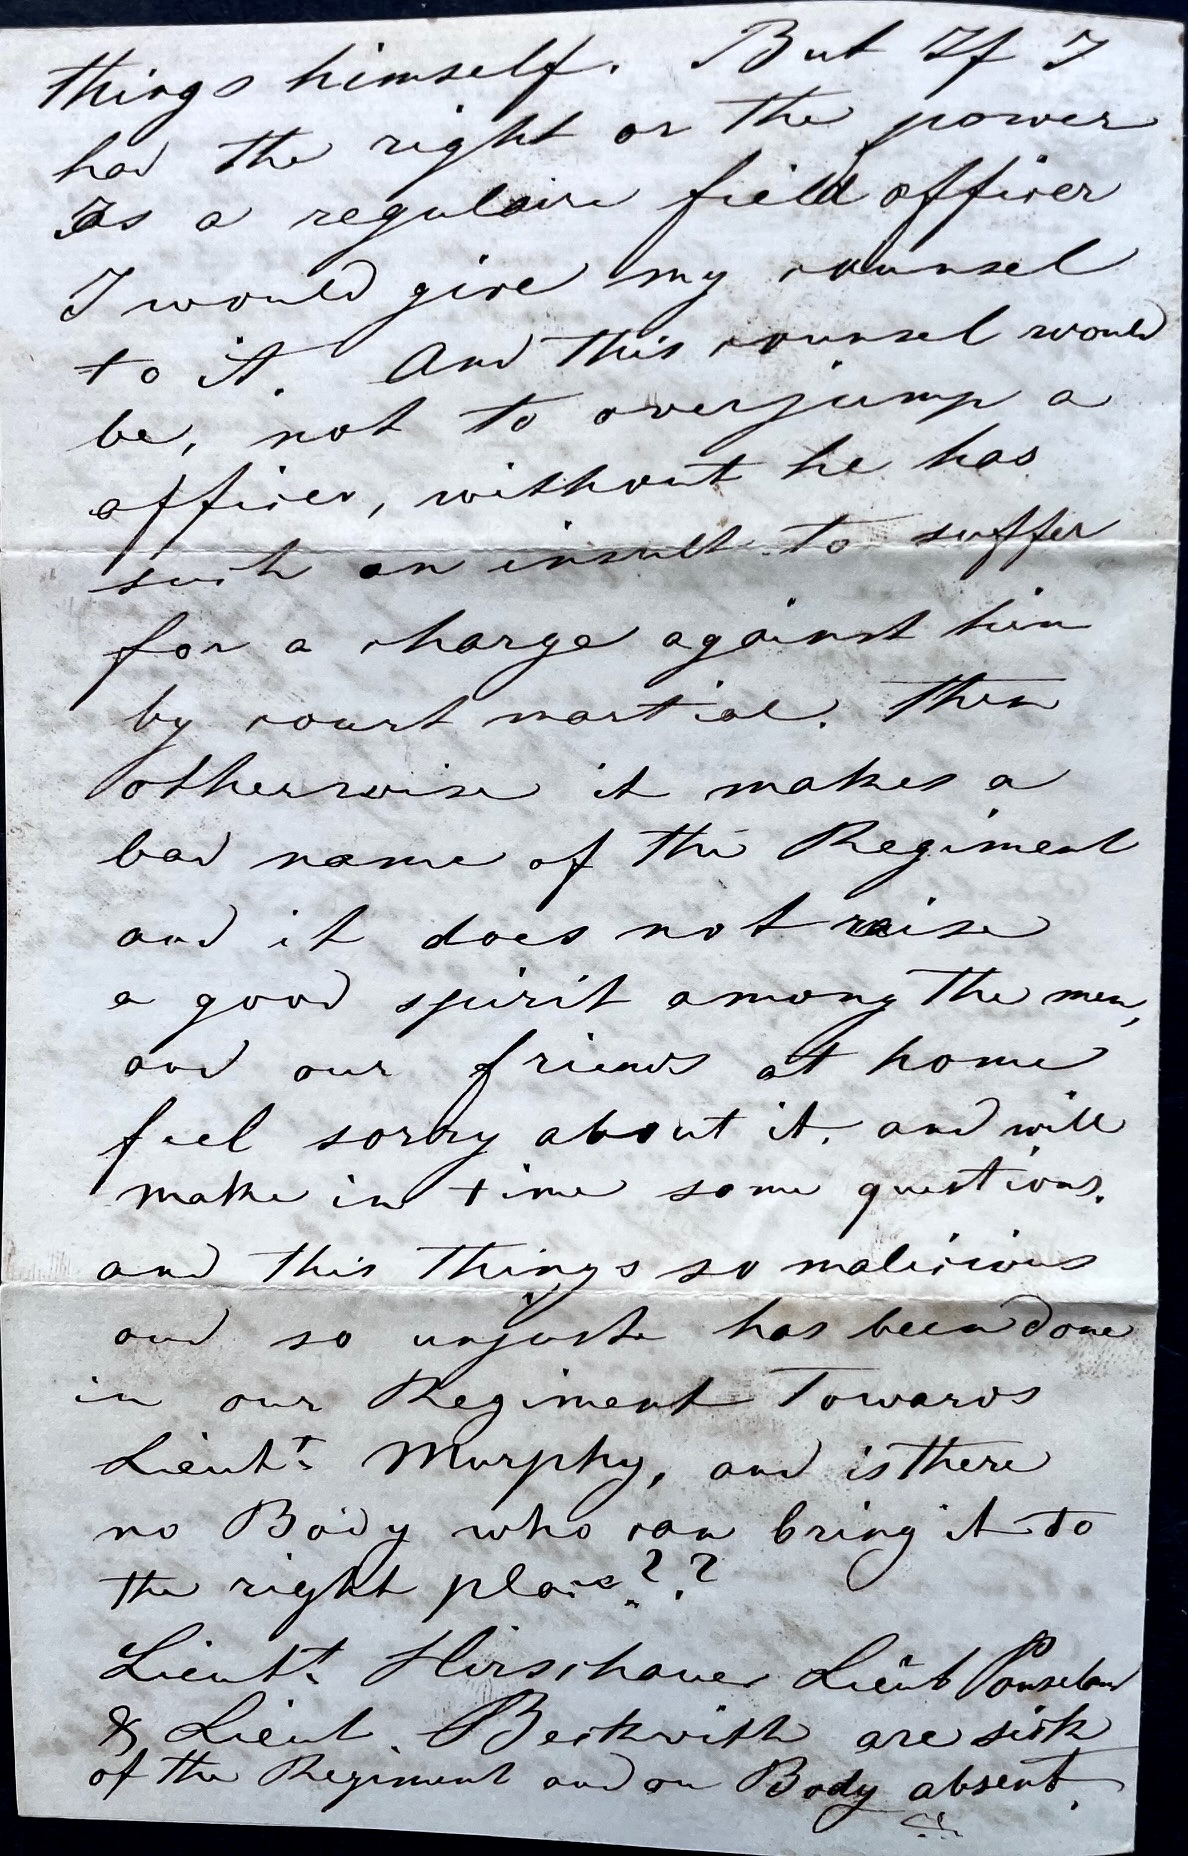 things himself. But If I
had the right or the power
as a regulaire field officer
I would give my counsel
to it. And this counsel would
be, not to overjump a
officer, without he has
such an insult to suffer
for a charge against him
by court martial. Then
otherwise it makes a
bad name of the Regiment
and it does not raise
a good spirit among the men,
and our friends at home
feel sorry about it. and will
make in time some questions.
and this things so malicious
and so unjuste has been done
in our Regiment Towards
Lieut. Murphy, and is there
no Body who can bring it to
the right place??
Lieut. Hirschauer Lieut
& Lieut. Beckwith are sick
of the Regiment and on Body absent.